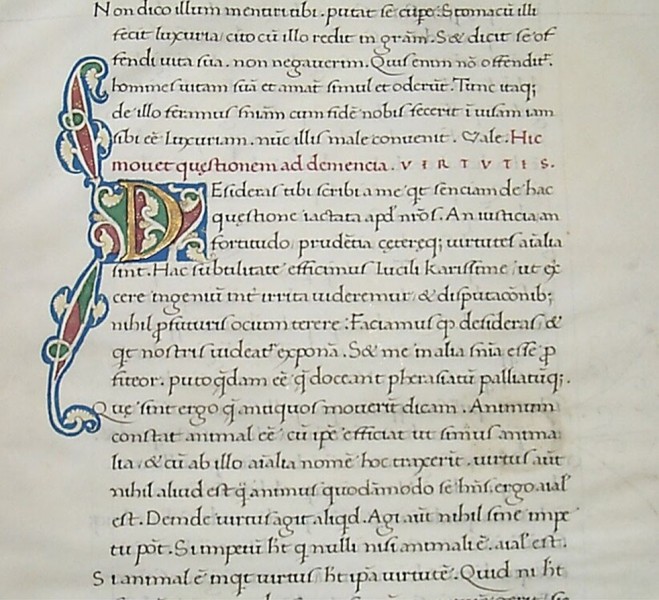 Non dico illum mentiri tibi . putat se cupe . Stomacū illi
fecit luxuria , cito cū illo redit in grām . S& dicit se of
fendi vita sua . non negaverim . Quis enim nō offendit .
homines vitam suā et amāt simul et oderūt . Tunc itaq;
de illo feramus sniam cum fidē nobis fecerit ī visam iam
sibi eē luxuriam . nūc illis male convenit . Vale . Hic
movet quęstionem ad demencia . VIRTVTIS .
DEsideras tibi scribi a me qt senciam de hac
quęstione iactata apd nrōs . An iusticia an
fortitudo , prudētia cętereq; virtutes aīalia
sint . Hac subtilitate efficimus Lucili karissime , ut ex
cere ingeniū int irrita videremur , & disputacōnib;
nihil pfuturis ocium terere : Faciamus qp desideras , &
qt nostris videat exponā . S& me in alia snia esse p
fiteor . puto qdam eē q doceant pherasiatū palliatūq; .
Que sint ergo q antiquos moverīt dicam . Animum
constat animal eē , cū ipe efficiat ut simus anima
lia , & cū ab illo aīalia nomē hoc traxerīt . virtus aūt
nihil aliud est q animus quodāmodo se hns . ergo aial
est . Deinde virtus agit aliqd . Agi aūt nihil sine impe
tu pōt . Si impetū ht q nulli nisi animali ē . aial est .
Si animal ē inqt virtus ht ipa virtutē . Quid ni ht